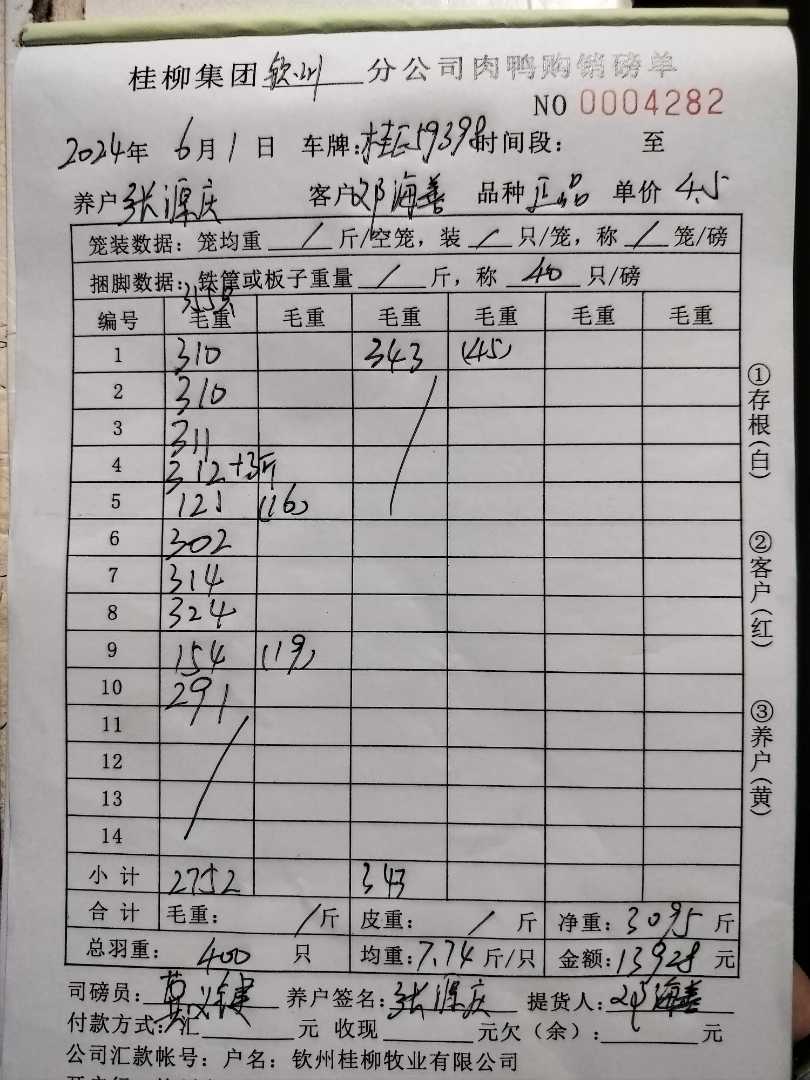 桂柳集团钦州分公司肉鸭购销磅单
NO 0004282
2024年 6月1日 车牌:桂E59398 时间段: 至
养户张源庆 客户邓海善 品种正品 单价4.5
笼装数据: 笼均重 / 斤/空笼, 装 / 只/笼, 称 / 笼/磅
捆脚数据: 铁筐或板子重量 / 斤, 称 40 只/磅
355只
编号 毛重 毛重 毛重 毛重 毛重 毛重
1 310 343 (45)
2 310 /
3 311
4 312+3斤
5 121 (16)
6 302
7 314
8 324
9 154 (19)
10 291
11 /
12
13
14
小计 2752 343
合计 毛重: / 斤 皮重: / 斤 净重: 3095 斤
总羽重: 400 只 均重: 7.74 斤/只 金额: 13928 元
司磅员: 养户签名: 张源庆 提货人: 邓海善
付款方式: 汇 元 收现 元欠(余): 元
公司汇款帐号: 户名: 钦州桂柳牧业有限公司
①存根(白)
②客户(红)
③养户(黄)